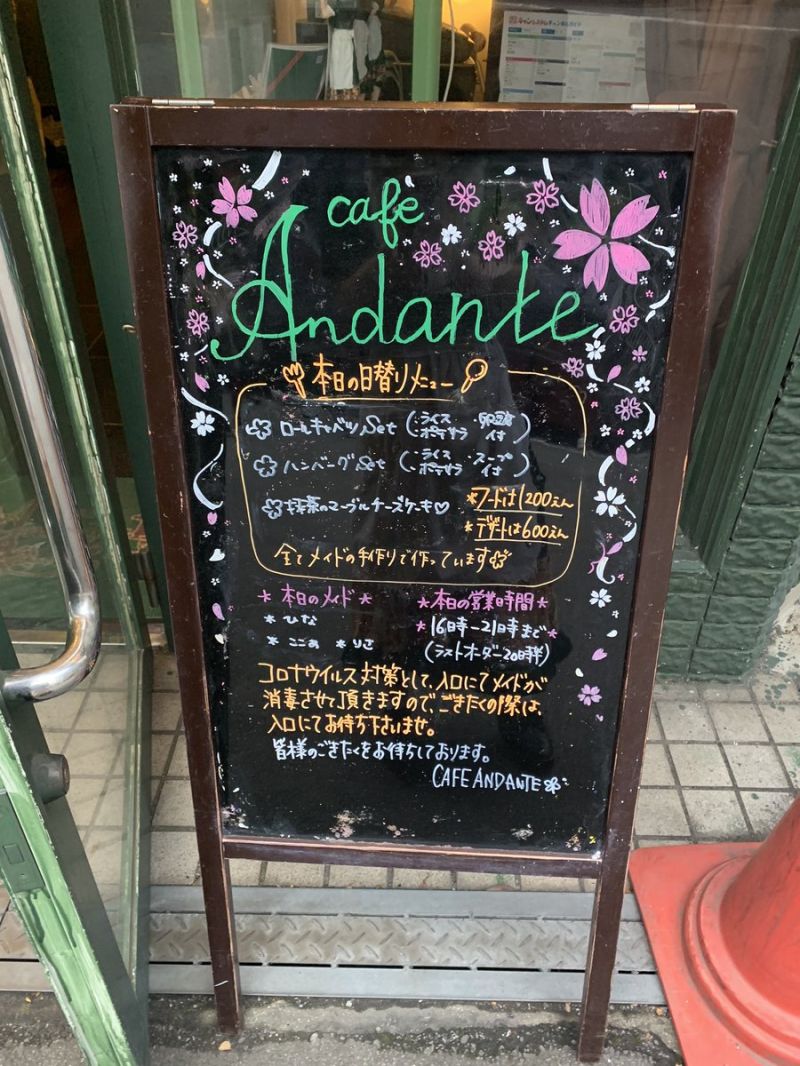 cafe
Andante
本日の日替りメニュー
ロールキャベツSet (・ライス ・ポテサラ
ハンバーグSet (・ライス ・スープ ・ポテサラ
抹茶のマーブルチーズケーキ♡
*フードは1200えん
*デザートは600えん
全てメイドの手作りで作っています
*本日のメイド*
* ひな
* ここあ * りさ
*本日の営業時間*
*16時〜21時まで*
(ラストオーダー20時半)
コロナウイルス対策として、入口にてメイドが
消毒させて頂きますので、ごきたくの際は、
入口にてお待ち下さいませ。
皆様のごきたくをお待ちしております。
CAFE ANDANTE